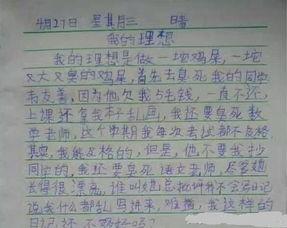 4月27日 星期三 晴
我的理想
我的理想是做一坨鸡屎,一坨
又大又臭的鸡屎,首先去臭死我的同学
韦友善,因为他欠我5毛钱,一直不还,
上课还在我本子乱画,我还要臭死数
学老师,这个学期我每次考试都不及格
其实,我能及格的,但是,他不要我抄
同学的,我还要臭死语文老师,尽管她
长得很漂亮,谁叫她总批评我不会写日记
说我什么都乱写进来,难道,我这样的
日记还不够好吗?